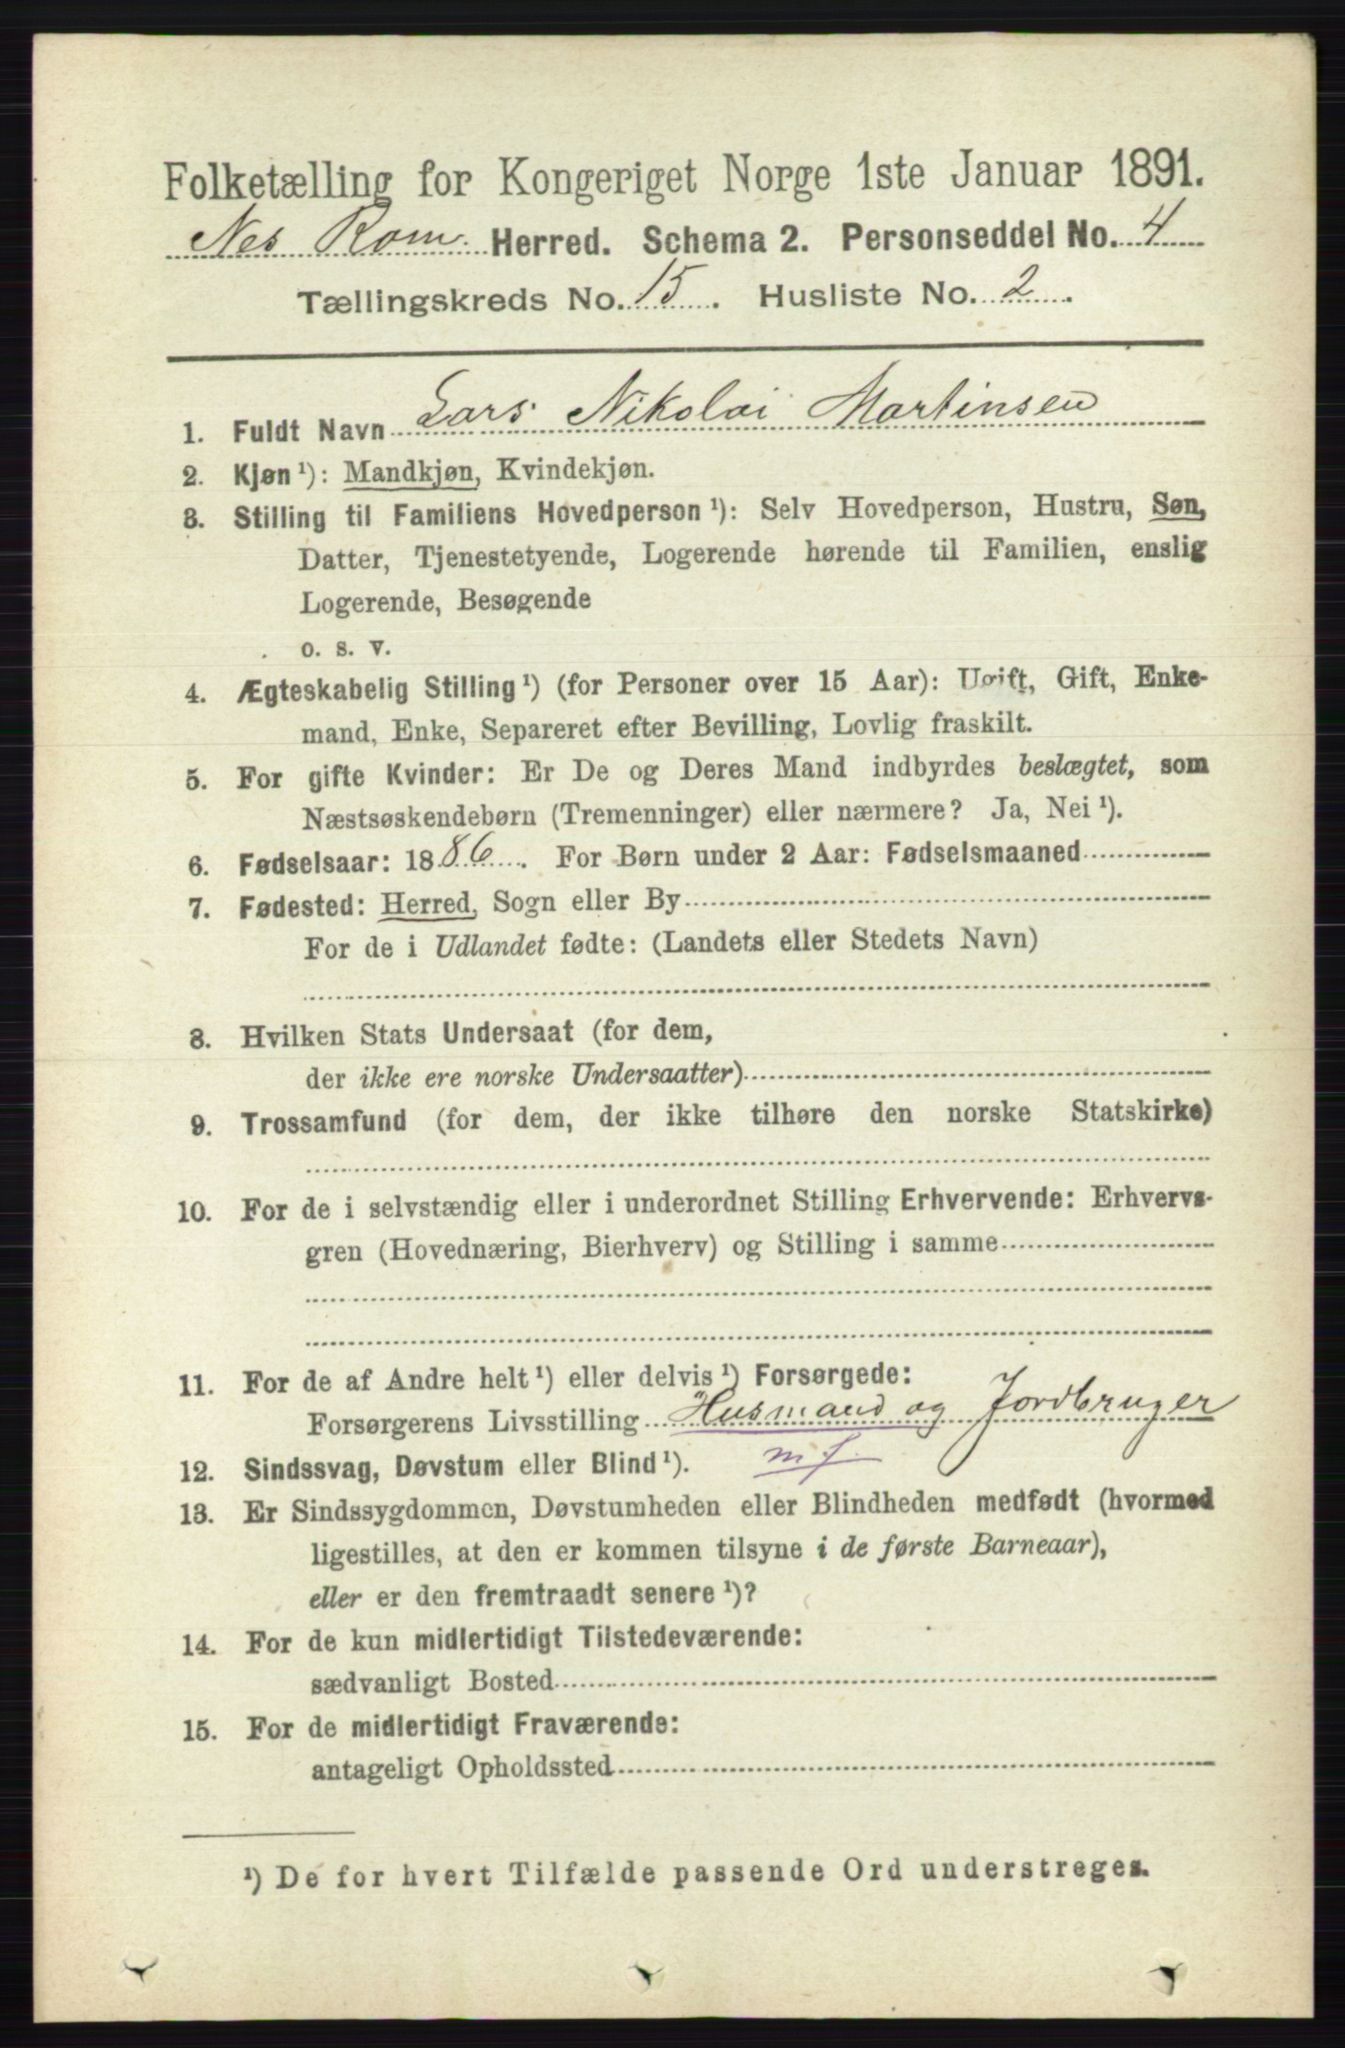 Folketælling for Kongeriget Norge 1ste Januar 1891.
Nes Rom. Herred. Schema 2. Personseddel No. 4
Tællingskreds No. 15. Husliste No. 2.
1. Fuldt Navn Lars Nikolai Martinsen
2. Kjøn ¹): Mandkjøn, Kvindekjøn.
3. Stilling til Familiens Hovedperson ¹): Selv Hovedperson, Hustru, Søn,
Datter, Tjenestetyende, Logerende hørende til Familien, enslig
Logerende, Besøgende
o. s. v.
4. Ægteskabelig Stilling ¹) (for Personer over 15 Aar): Ugift, Gift, Enke-
mand, Enke, Separeret efter Bevilling, Lovlig fraskilt.
5. For gifte Kvinder: Er De og Deres Mand indbyrdes beslægtet, som
Næstsøskendebørn (Tremenninger) eller nærmere? Ja, Nei ¹).
6. Fødselsaar: 1886. For Børn under 2 Aar: Fødselsmaaned
7. Fødested: Herred, Sogn eller By
For de i Udlandet fødte: (Landets eller Stedets Navn)
8. Hvilken Stats Undersaat (for dem,
der ikke ere norske Undersaatter)
9. Trossamfund (for dem, der ikke tilhøre den norske Statskirke)
10. For de i selvstændig eller i underordnet Stilling Erhvervende: Erhvervs-
gren (Hovednæring, Bierhverv) og Stilling i samme
11. For de af Andre helt ¹) eller delvis ¹) Forsørgede:
Forsørgerens Livsstilling Husmand og Jordbruger
12. Sindssvag, Døvstum eller Blind ¹). m f.
13. Er Sindssygdommen, Døvstumheden eller Blindheden medfødt (hvormed
ligestilles, at den er kommen tilsyne i de første Barneaar),
eller er den fremtraadt senere ¹)?
14. For de kun midlertidigt Tilstedeværende:
sædvanligt Bosted
15. For de midlertidigt Fraværende:
antageligt Opholdssted
¹) De for hvert Tilfælde passende Ord understreges.